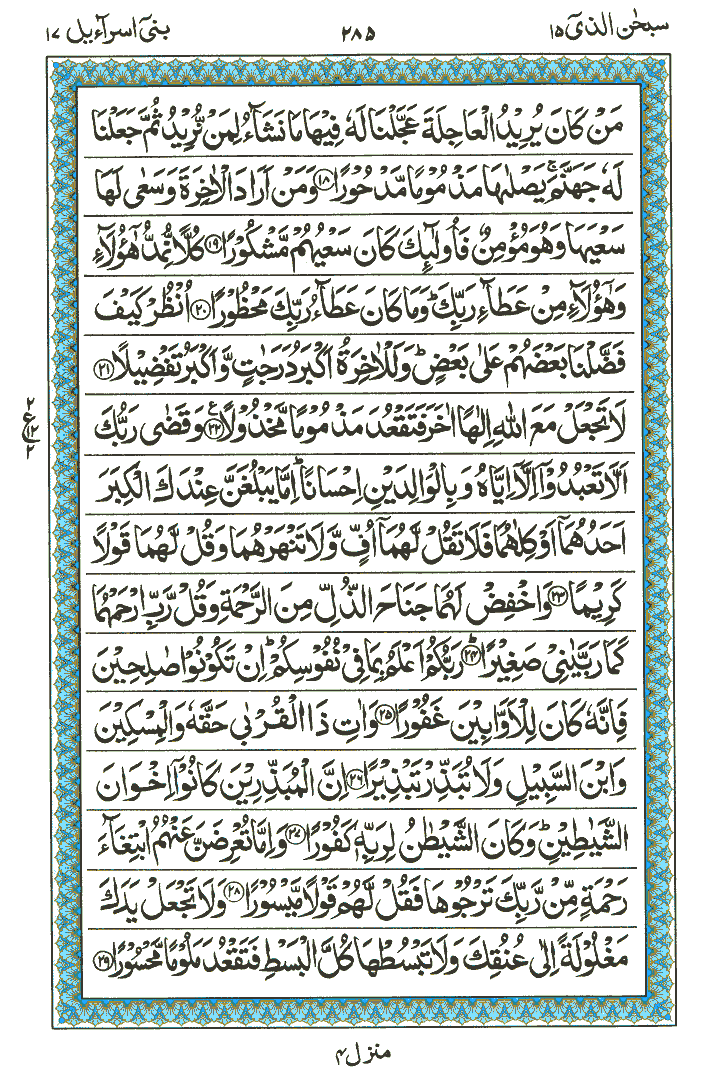 سبحٰن الذیٓ ۱۵ ۲۸۵ بنیٓ اسرآءیل ۱۷
مَنْ كَانَ يُرِيْدُ الْعَاجِلَةَ عَجَّلْنَا لَهٗ فِيْهَا مَا نَشَآءُ لِمَنْ نُّرِيْدُ ثُمَّ جَعَلْنَا
لَهٗ جَهَنَّمَ ۚ يَصْلٰىهَا مَذْمُوْمًا مَّدْحُوْرًا ۝۱۸ وَمَنْ اَرَادَ الْاٰخِرَةَ وَسَعٰى لَهَا
سَعْيَهَا وَهُوَ مُؤْمِنٌ فَاُولٰٓئِكَ كَانَ سَعْيُهُمْ مَّشْكُوْرًا ۝۱۹ كُلًّا نُّمِدُّ هٰٓؤُلَآءِ
وَهٰٓؤُلَآءِ مِنْ عَطَآءِ رَبِّكَ ؕ وَمَا كَانَ عَطَآءُ رَبِّكَ مَحْظُوْرًا ۝۲۰ اُنْظُرْ كَيْفَ
فَضَّلْنَا بَعْضَهُمْ عَلٰى بَعْضٍ ؕ وَلَلْاٰخِرَةُ اَكْبَرُ دَرَجٰتٍ وَّاَكْبَرُ تَفْضِيْلًا ۝۲۱
لَا تَجْعَلْ مَعَ اللّٰهِ اِلٰهًا اٰخَرَ فَتَقْعُدَ مَذْمُوْمًا مَّخْذُوْلًا ۝۲۲ ع وَقَضٰى رَبُّكَ
۲ ع ۱۲ ۲
اَلَّا تَعْبُدُوْٓا اِلَّآ اِيَّاهُ وَبِالْوَالِدَيْنِ اِحْسَانًا ؕ اِمَّا يَبْلُغَنَّ عِنْدَكَ الْكِبَرَ
اَحَدُهُمَآ اَوْ كِلٰهُمَا فَلَا تَقُلْ لَّهُمَآ اُفٍّ وَّلَا تَنْهَرْهُمَا وَقُلْ لَّهُمَا قَوْلًا
كَرِيْمًا ۝۲۳ وَاخْفِضْ لَهُمَا جَنَاحَ الذُّلِّ مِنَ الرَّحْمَةِ وَقُلْ رَّبِّ ارْحَمْهُمَا
كَمَا رَبَّيٰنِيْ صَغِيْرًا ۝۲۴ؕ رَبُّكُمْ اَعْلَمُ بِمَا فِيْ نُفُوْسِكُمْ ؕ اِنْ تَكُوْنُوْا صٰلِحِيْنَ
فَاِنَّهٗ كَانَ لِلْاَوَّابِيْنَ غَفُوْرًا ۝۲۵ وَاٰتِ ذَا الْقُرْبٰى حَقَّهٗ وَالْمِسْكِيْنَ
وَابْنَ السَّبِيْلِ وَلَا تُبَذِّرْ تَبْذِيْرًا ۝۲۶ اِنَّ الْمُبَذِّرِيْنَ كَانُوْٓا اِخْوَانَ
الشَّيٰطِيْنِ ؕ وَكَانَ الشَّيْطٰنُ لِرَبِّهٖ كَفُوْرًا ۝۲۷ وَاِمَّا تُعْرِضَنَّ عَنْهُمُ ابْتِغَآءَ
رَحْمَةٍ مِّنْ رَّبِّكَ تَرْجُوْهَا فَقُلْ لَّهُمْ قَوْلًا مَّيْسُوْرًا ۝۲۸ وَلَا تَجْعَلْ يَدَكَ
مَغْلُوْلَةً اِلٰى عُنُقِكَ وَلَا تَبْسُطْهَا كُلَّ الْبَسْطِ فَتَقْعُدَ مَلُوْمًا مَّحْسُوْرًا ۝۲۹
منزل ۴